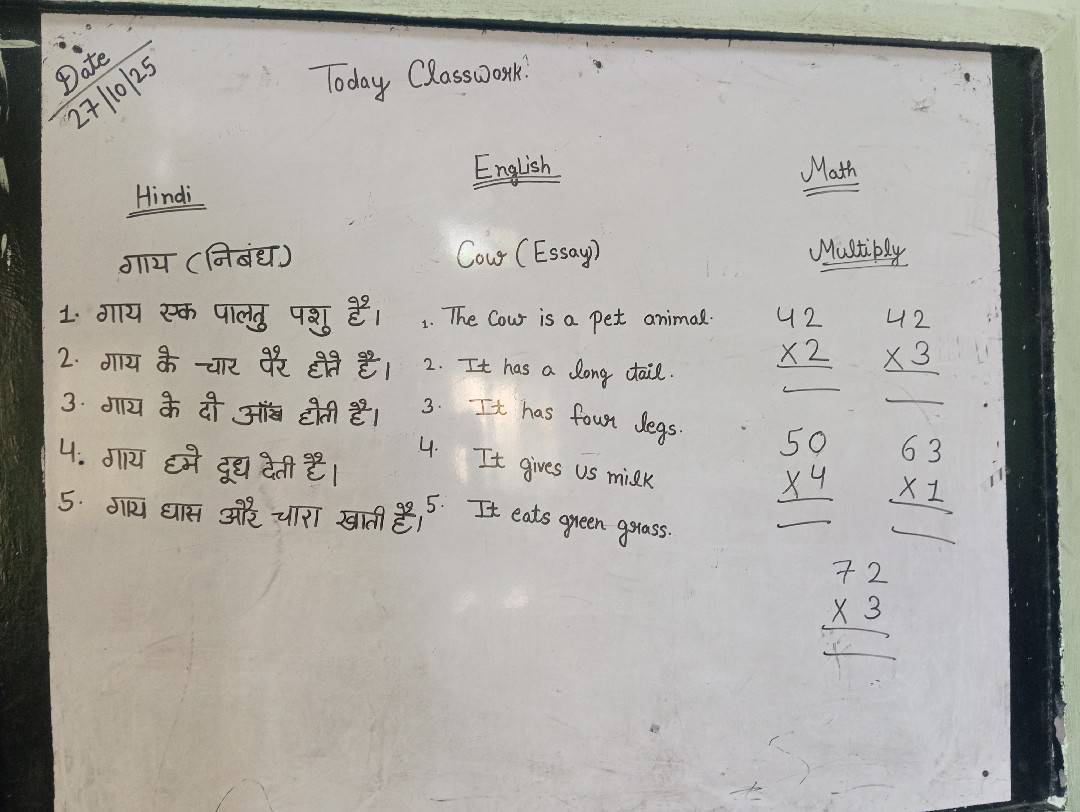 Date
27/10/25
Today Classwork:
Hindi
गाय (निबंध)
1. गाय एक पालतु पशु है।
2. गाय के चार पैर होते है।
3. गाय के दो आँख होती है।
4. गाय हमे दूध देती है।
5. गाय घास और चारा खाती है।
English
Cow (Essay)
1. The Cow is a pet animal.
2. It has a long tail.
3. It has four legs.
4. It gives us milk
5. It eats green grass.
Math
Multiply
42 42
x2 x3
50 63
x4 x1
72
x3